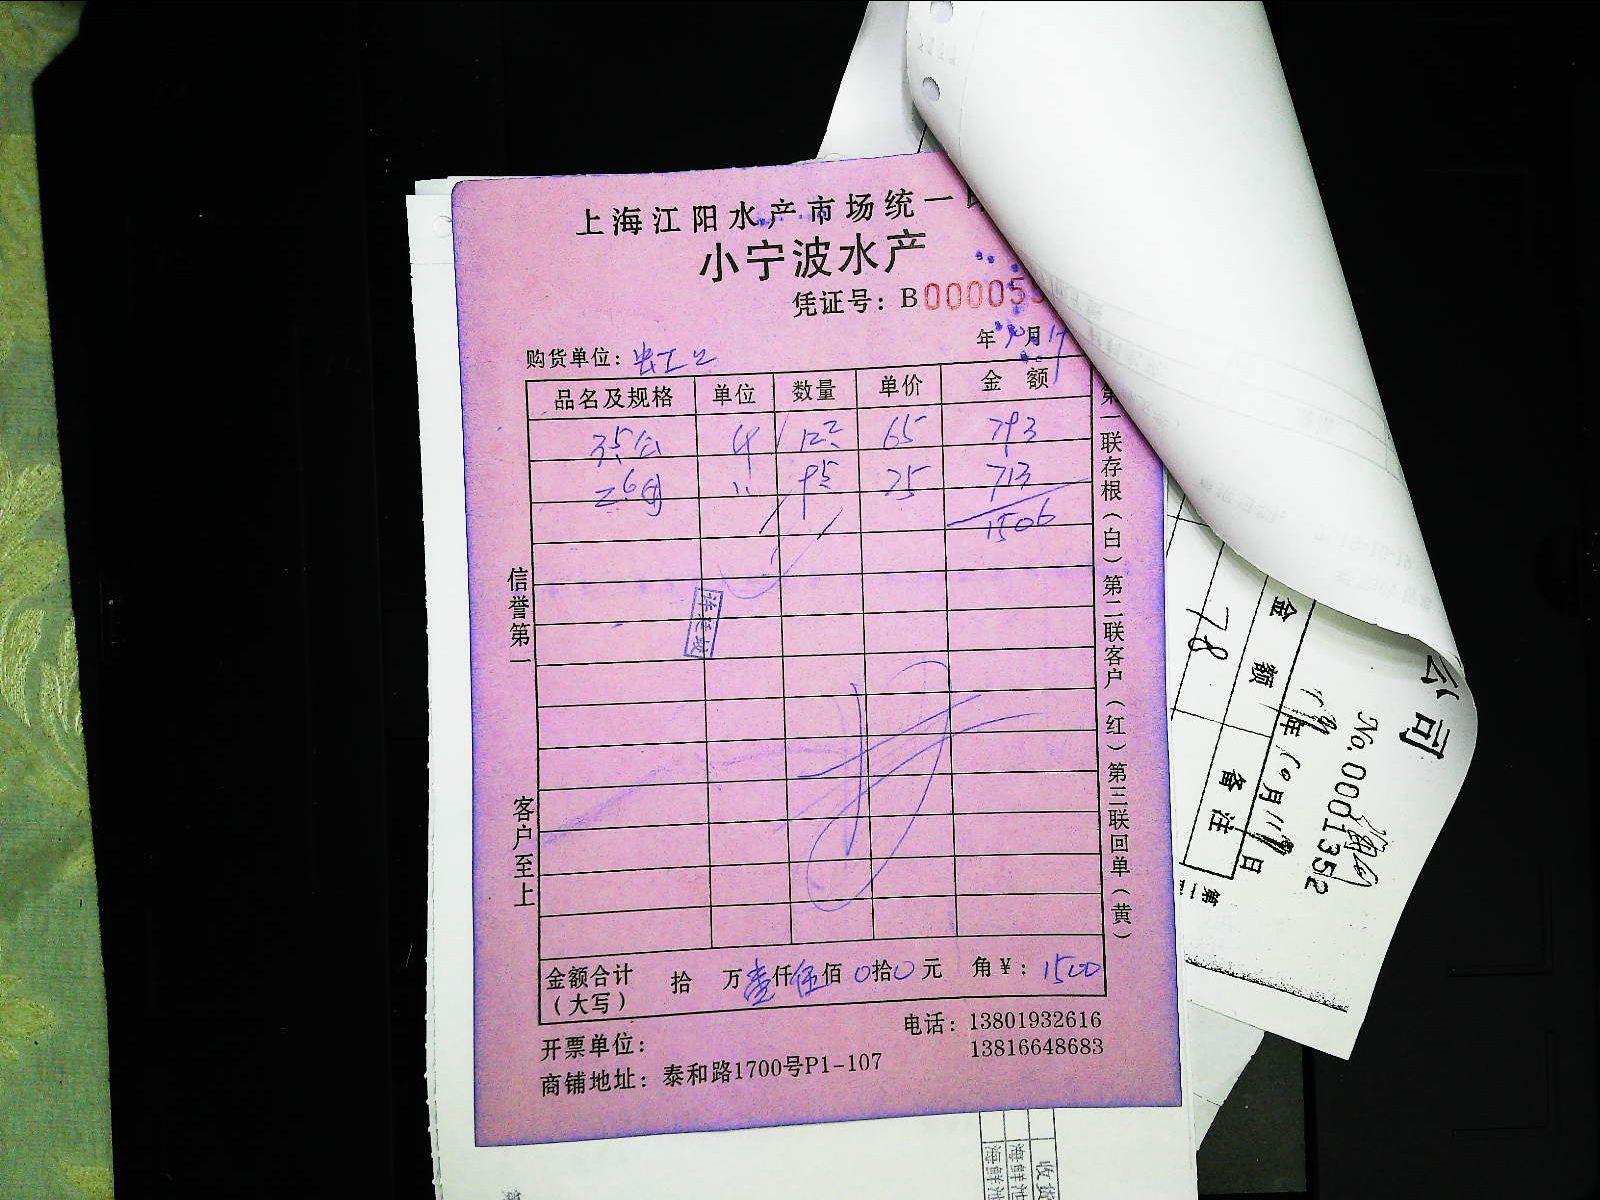 上海江阳水产市场统一
小宁波水产
凭证号：B00005
年 10月17
购货单位：
品名及规格 单位 数量 单价 金 额
35公 122 65 793
26母 〃 95 75 713
1506
信誉第一
客户至上
第一联存根（白）第二联客户（红）第三联回单（黄）
金额合计（大写） 拾 万壹仟伍佰0拾0元 角￥：1500
开票单位：
电话：13801932616
13816648683
商铺地址：泰和路1700号P1-107
公司
No.0001352
年10月17日
金额 备注
78
海鲜池
海鲜池
收货